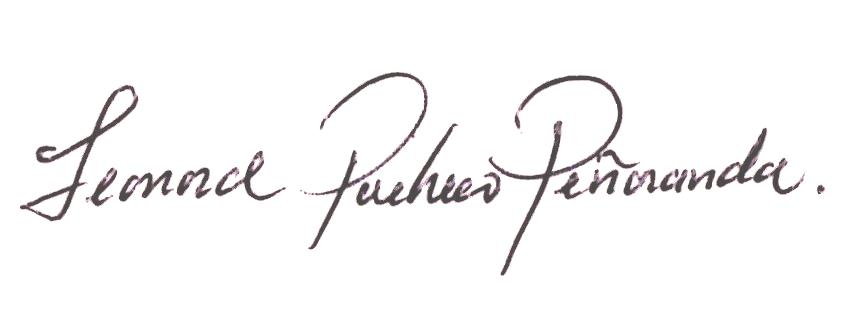 Leonord Pacheco Peñaranda.